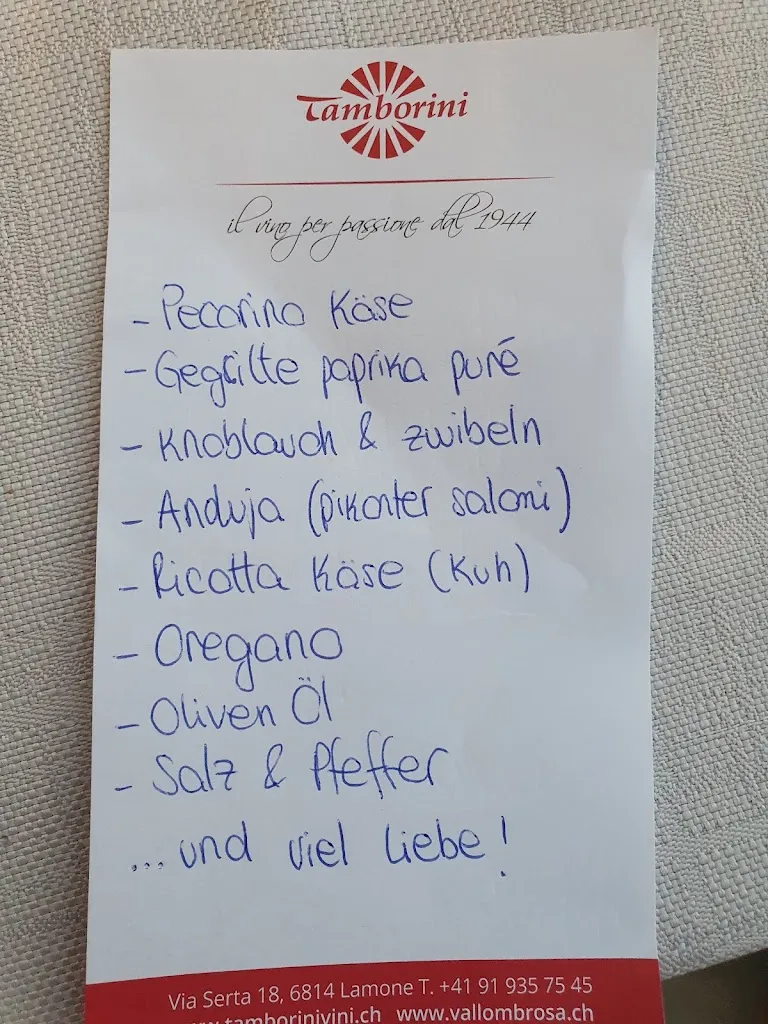 Tamborini
il vino per passione dal 1944
- Pecorino Käse
- Gegrilte paprika puré
- Knoblauch & zwibeln
- Anduja (pikanter salami)
- Ricotta Käse (Kuh)
- Oregano
- Oliven Öl
- Salz & Pfeffer
... und viel Liebe!
Via Serta 18, 6814 Lamone T. +41 91 935 75 45
www.tamborinivini.ch www.vallombrosa.ch